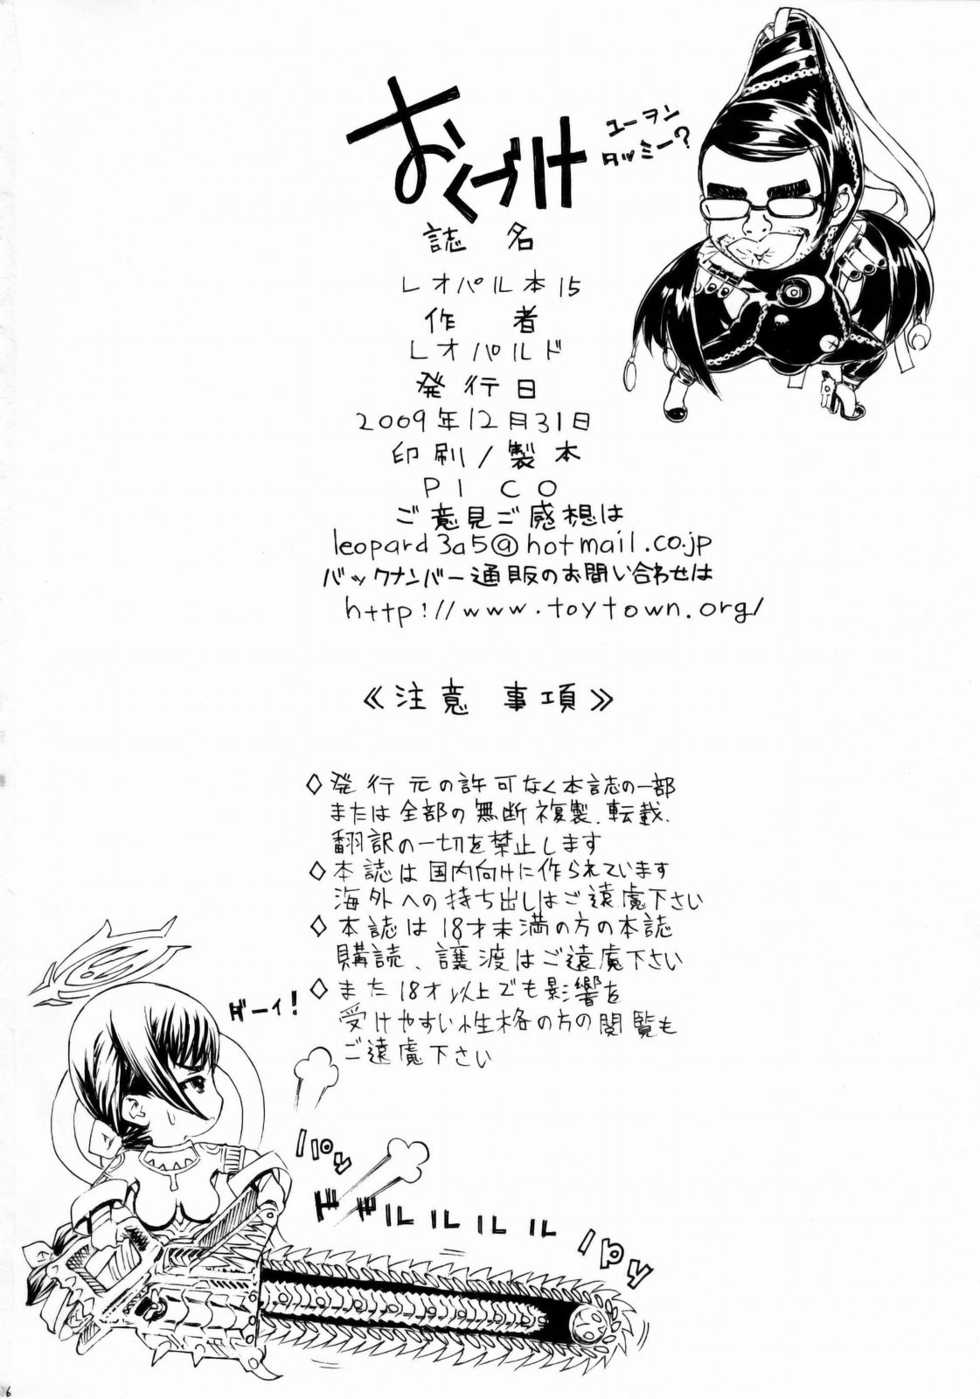 おくづけ
ユーヲン
タッミー?
誌名
レオパル本15
作者
レオパルド
発行日
2009年12月31日
印刷/製本
PICO
ご意見ご感想は
leopard3a5@hotmail.co.jp
バックナンバー通販のお問い合わせは
http://www.toytown.org/
《注意事項》
◇発行元の許可なく本誌の一部
または全部の無断複製、転載、
翻訳の一切を禁止します
◇本誌は国内向けに作られています
海外への持ち出しはご遠慮下さい
◇本誌は18才未満の方の本誌
購読、譲渡はご遠慮下さい
◇また18才以上でも影響を
受けやすい性格の方の閲覧も
ご遠慮下さい
ダーィ!
パパッ
ドドルルルルル
6